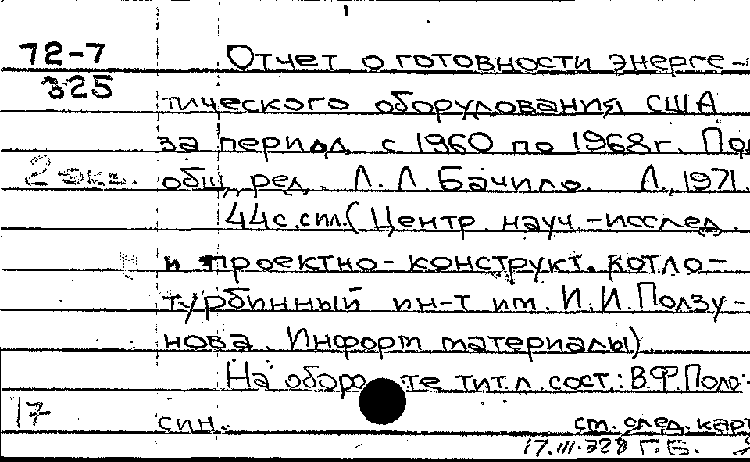 72-7 Отчет о готовности энерге-
325
тического оборудования США
за период с 1960 по 1968 г. Под
2 экз. общ. ред. Л. Л. Бачило. Л., 1971.
44 с. ил. (Центр. науч-исслед.
и проектно-конструкт. котло-
турбинный ин-т им. И. И. Ползу-
нова. Информ материалы)
На обороте тит. л. сост.: В.Ф. Поло-
17 син. ст. след. карт
17.III.328 Г.Б.